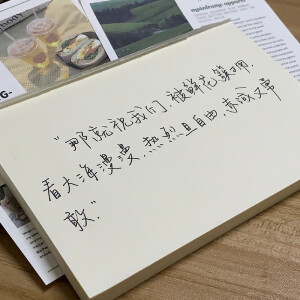 “那就祝我们.被鲜花簇拥.
看大海漫漫.热烈且自由.赤诚又勇
敢.”